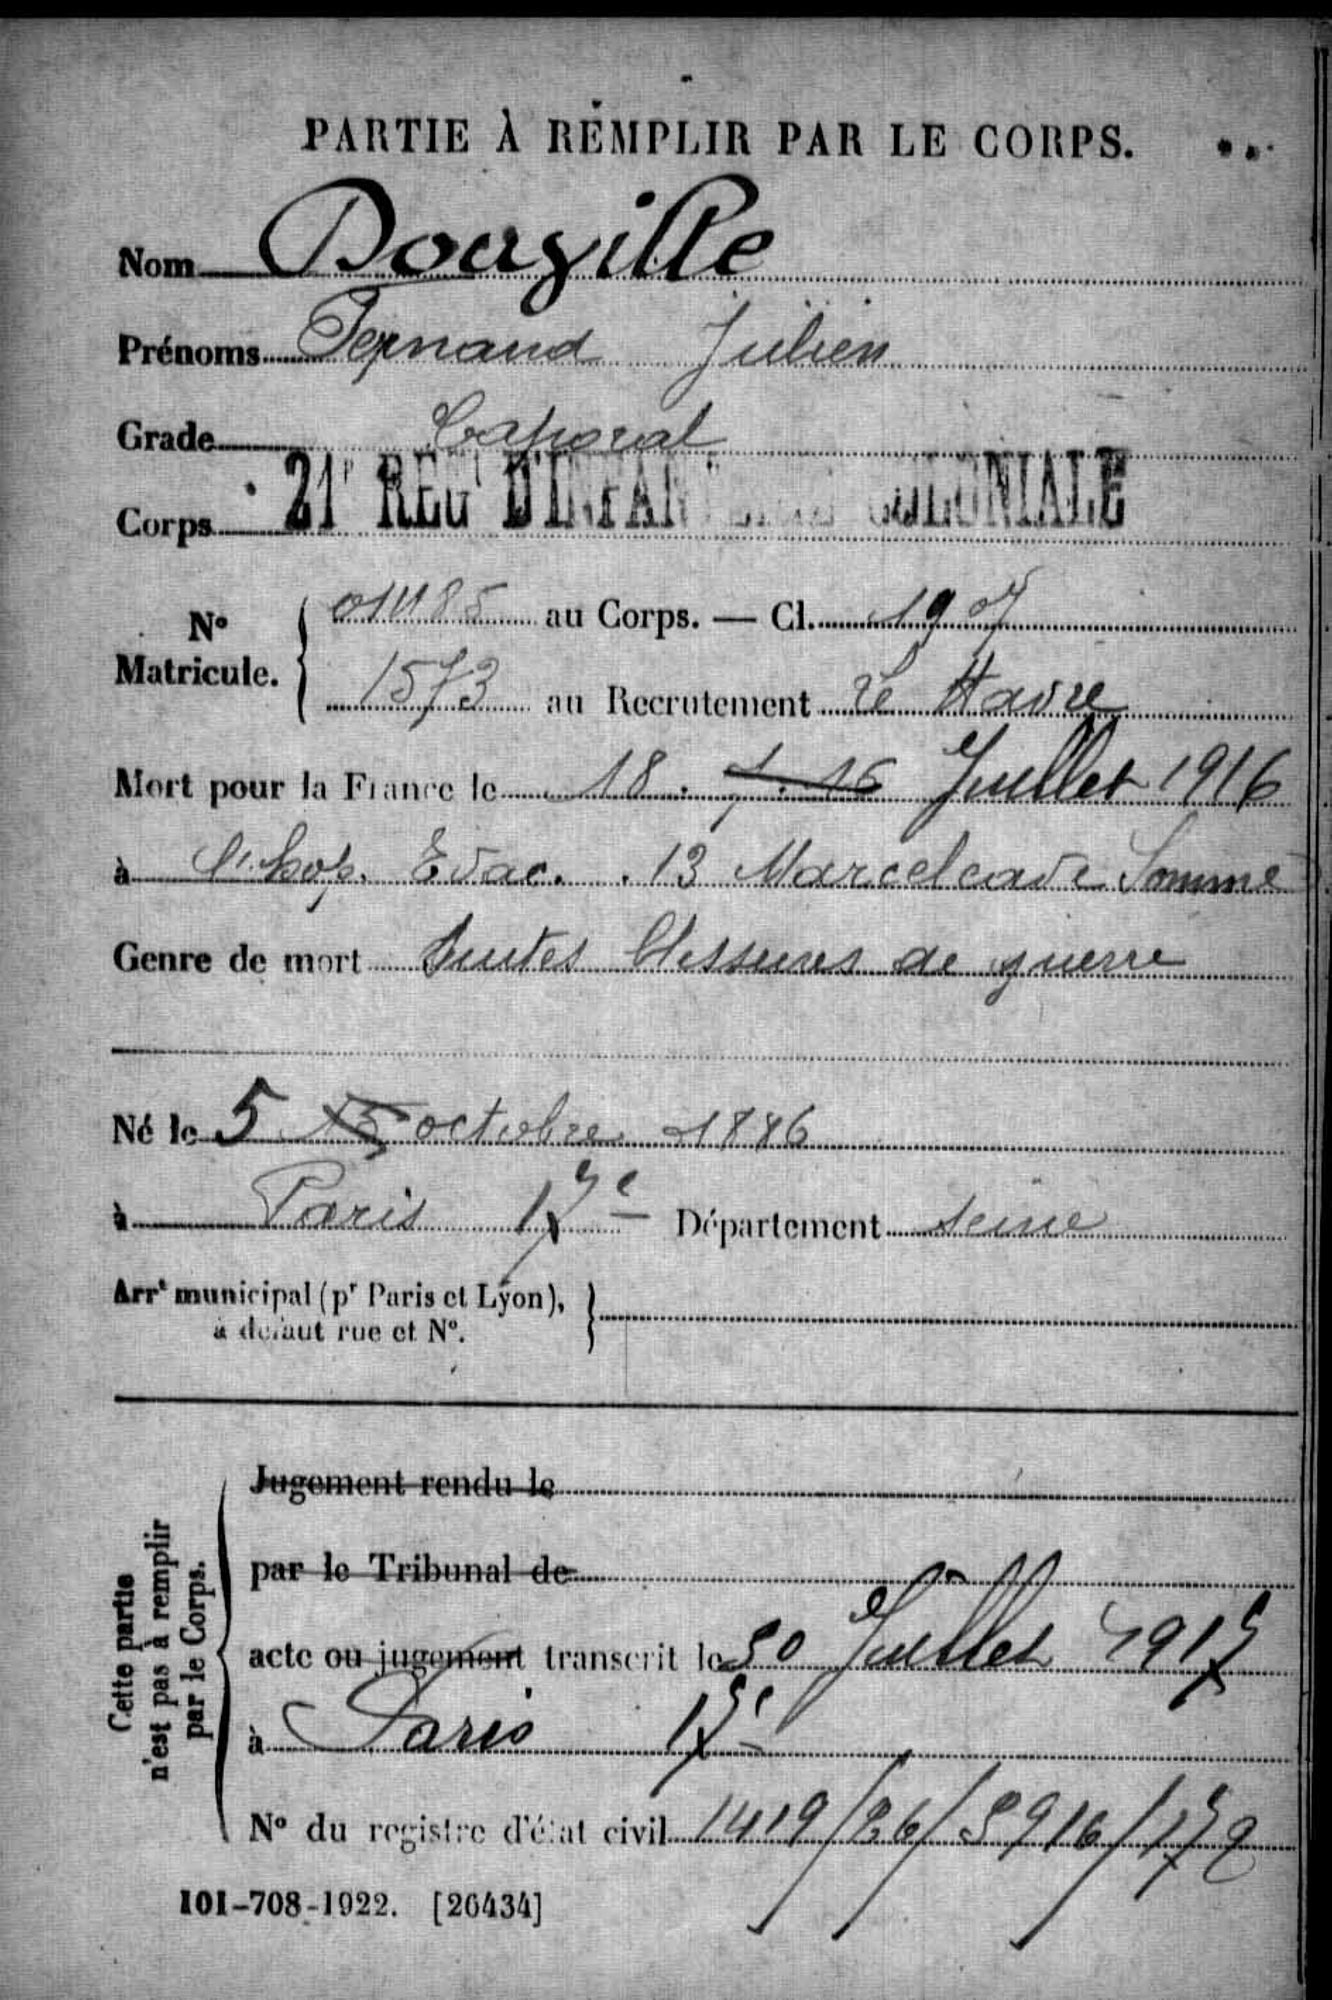 PARTIE À REMPLIR PAR LE CORPS.
Nom Douzille
Prénoms Fernand Julien
Grade Caporal
Corps 21e REGt D'INFANTERIE COLONIALE
No Matricule. 011185 au Corps. — Cl. 1907
1573 au Recrutement Le Havre
Mort pour la France le 18. 7. 16 Juillet 1916
à l'hop. Evac. . 13 Marcelcave Somme
Genre de mort Suites blessures de guerre
Né le 5 15 octobre 1886
à Paris 17e Département Seine
Arrt municipal (pr Paris et Lyon),
à défaut rue et No.
Cette partie
n'est pas à remplir
par le Corps.
Jugement rendu le
par le Tribunal de
acte ou jugement transcrit le 30 Juillet 1917
à Paris 17e
No du registre d'état civil 1419/26/
101-708-1922. [26434]